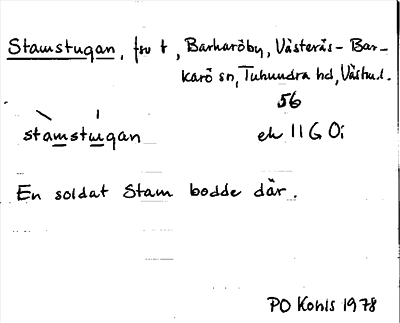 Stamstugan, frv t, Barkaröby, Västerås-Bar-
karö sn, Tuhundra hd, Västml.
56
stamstugan ek 11G 0i
En soldat Stam bodde där.
PO Kohls 1978